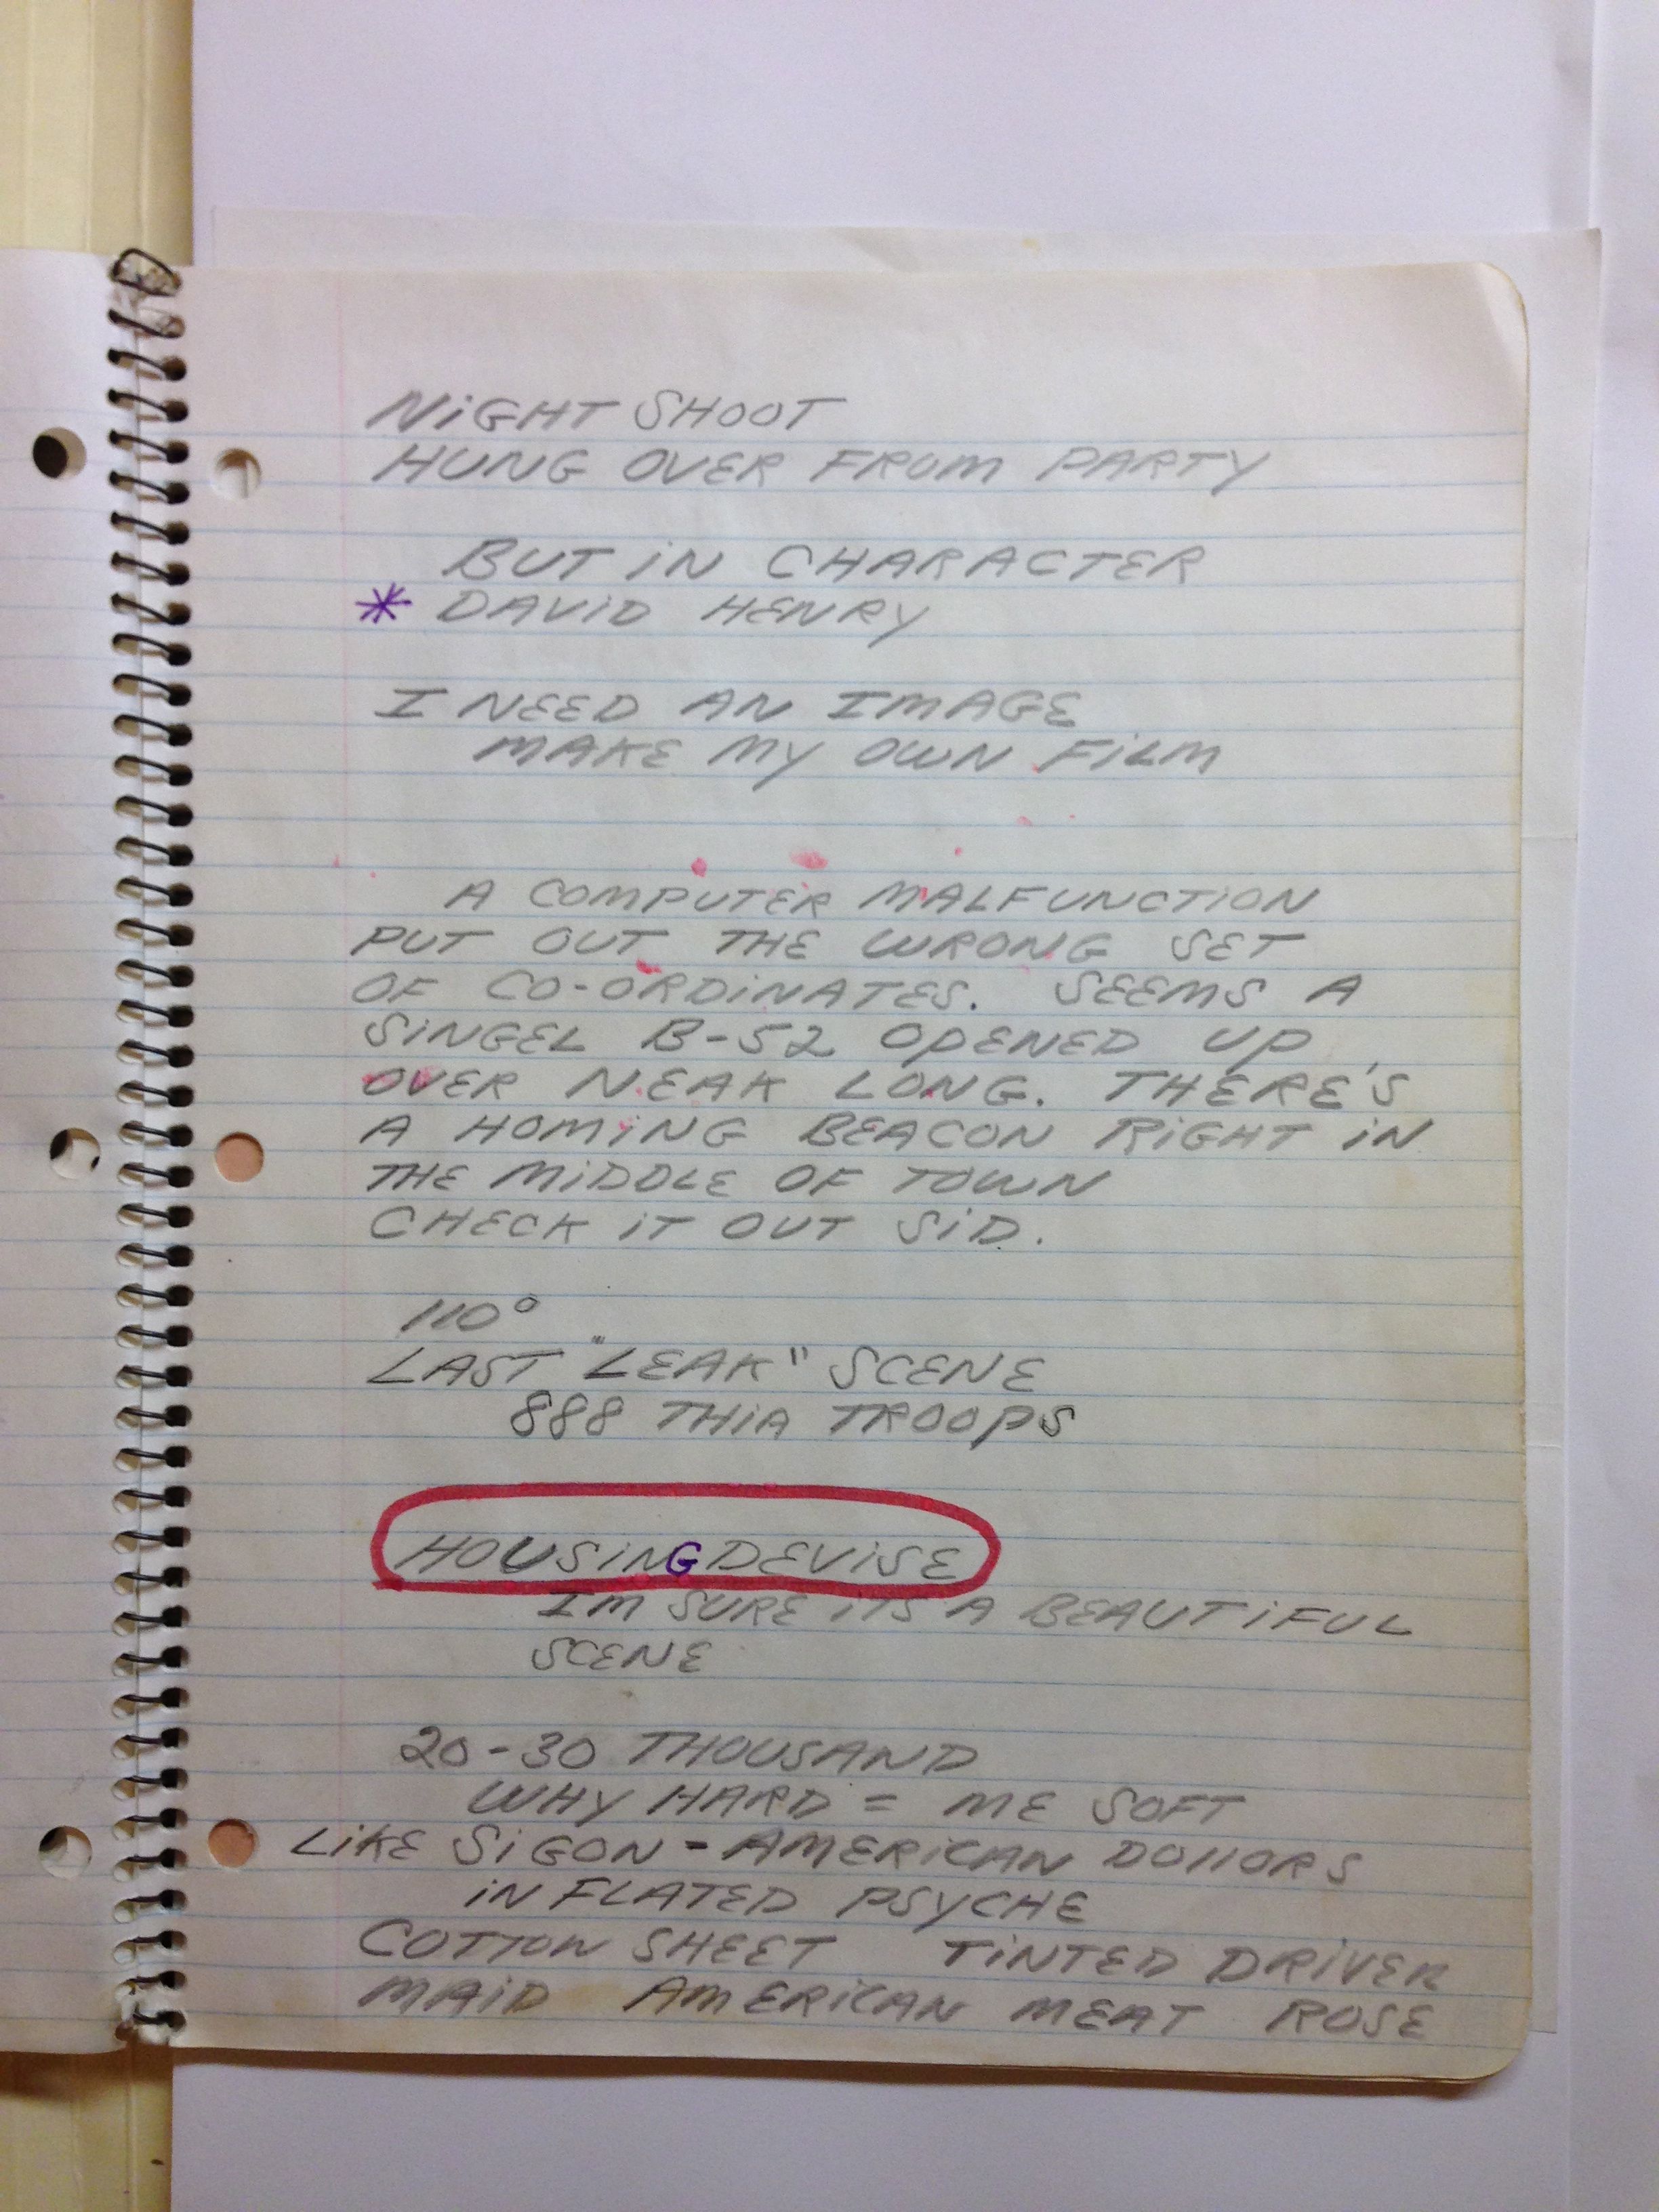 NiGHT SHOOT
HUNG OVER FROM PARTY
BUT iN CHARACTER
* DAViD HENRY
I NEED AN IMAGE
MAKE MY OWN FiLM
A COMPUTER MALFUNCTiON
PUT OUT THE WRONG SET
OF CO-ORDiNATES. SEEMS A
SiNGEL B-52 OPENED UP
OVER NEAK LONG. THERE'S
A HOMiNG BEACON RiGHT iN
THE MiDDLE OF TOWN
CHECK iT OUT SiD.
110°
LAST "LEAK" SCENE
888 THiA TROOPS
HOUSiNG DEViSE
I'M SURE iTS A BEAUTiFUL
SCENE
20-30 THOUSAND
WHY HARD = ME SOFT
LiKE SiGON - AMERiCAN DOllORS
iNFLATED PSYCHE
COTTON SHEET TiNTED DRiVER
MAiD AMERiCAN MEAT ROSE